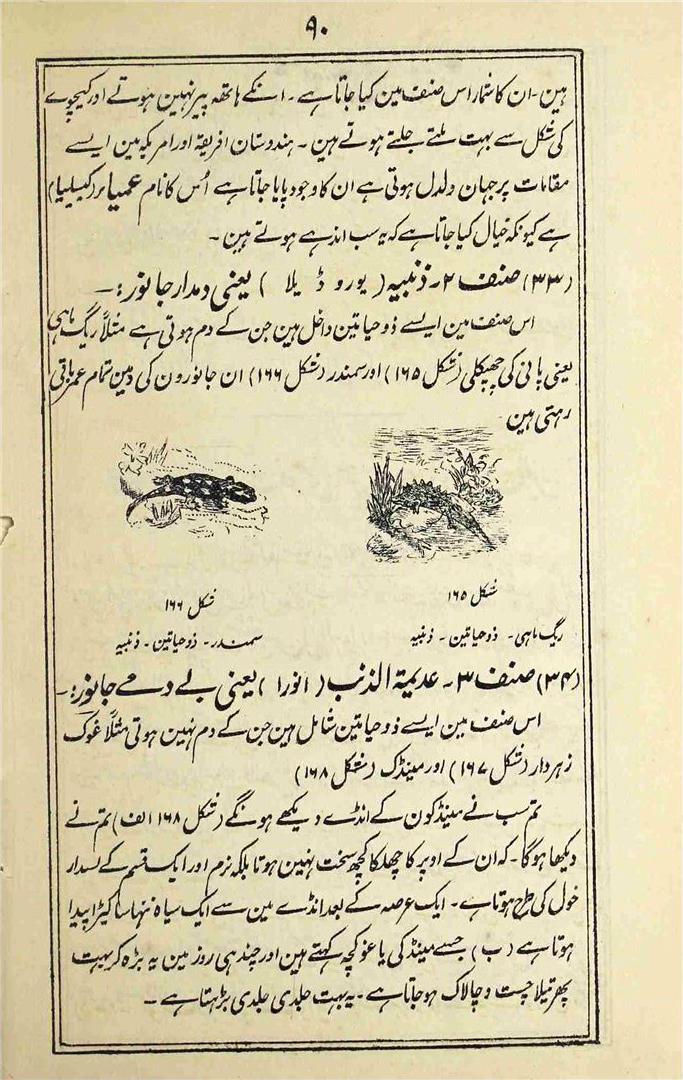 ۹۰
ہین۔ ان کا شمار اس صنف مین کیا جاتا ہے۔ انکے ہاتھہ پیر نہین ہوتے اور کیچوے
کی شکل سے بہت ملتے جلتے ہوتے ہین۔ ہندوستان افریقہ اور امریکہ مین ایسے
مقامات پر جہان دلدل ہوتی ہے ان کا وجود پایا جاتا ہے اُس کا نام عمیا (کیسیلیا)
ہے کیونکہ خیال کیا جاتا ہے کہ یہ سب اندہے ہوتے ہین۔
(۳۳) صنف ۲۔ ذنبیہ (یورو ڈیلا) یعنی دمدار جانور:۔
اس صنف مین ایسے ذوحیاتین داخل ہین جن کے دم ہوتی ہے مثلاً ریگ ماہی
یعنی پانی کی چھپکلی (شکل ۱۶۵) اور سمندر (شکل ۱۶۶) ان جانورون کی دمین تمام عمر باقی
رہتی ہین
شکل ۱۶۵
ریگ ماہی۔ ذوحیاتین۔ ذنبیہ
شکل ۱۶۶
سمندر۔ ذوحیاتین۔ ذنبیہ
(۳۴) صنف ۳۔ عدیمۃ الذنب (انورا) یعنی بے دمے جانور:۔
اس صنف مین ایسے ذوحیاتین شامل ہین جن کے دم نہین ہوتی مثلاً غوک
زہردار (شکل ۱۶۷) اور مینڈک (شکل ۱۶۸)
تم سب نے مینڈکون کے انڈے دیکھے ہونگے (شکل ۱۶۸ الف) تم نے
دیکھا ہوگا۔ کہ ان کے اوپر کا چھلکا کچھ سخت نہین ہوتا بلکہ نرم اور ایک قسم کے لسدار
خول کی طرح ہوتا ہے۔ ایک عرصہ کے بعد انڈے مین سے ایک سیاہ ننہا سا کیڑا پیدا
ہوتا ہے (ب) جسے مینڈکی یا غوکچہ کہتے ہین اور چند ہی روز مین یہ بڑہ کر بہت
پھرتیلا چست و چالاک ہو جاتا ہے۔ یہ بہت جلدی جلدی بڑہتا ہے۔